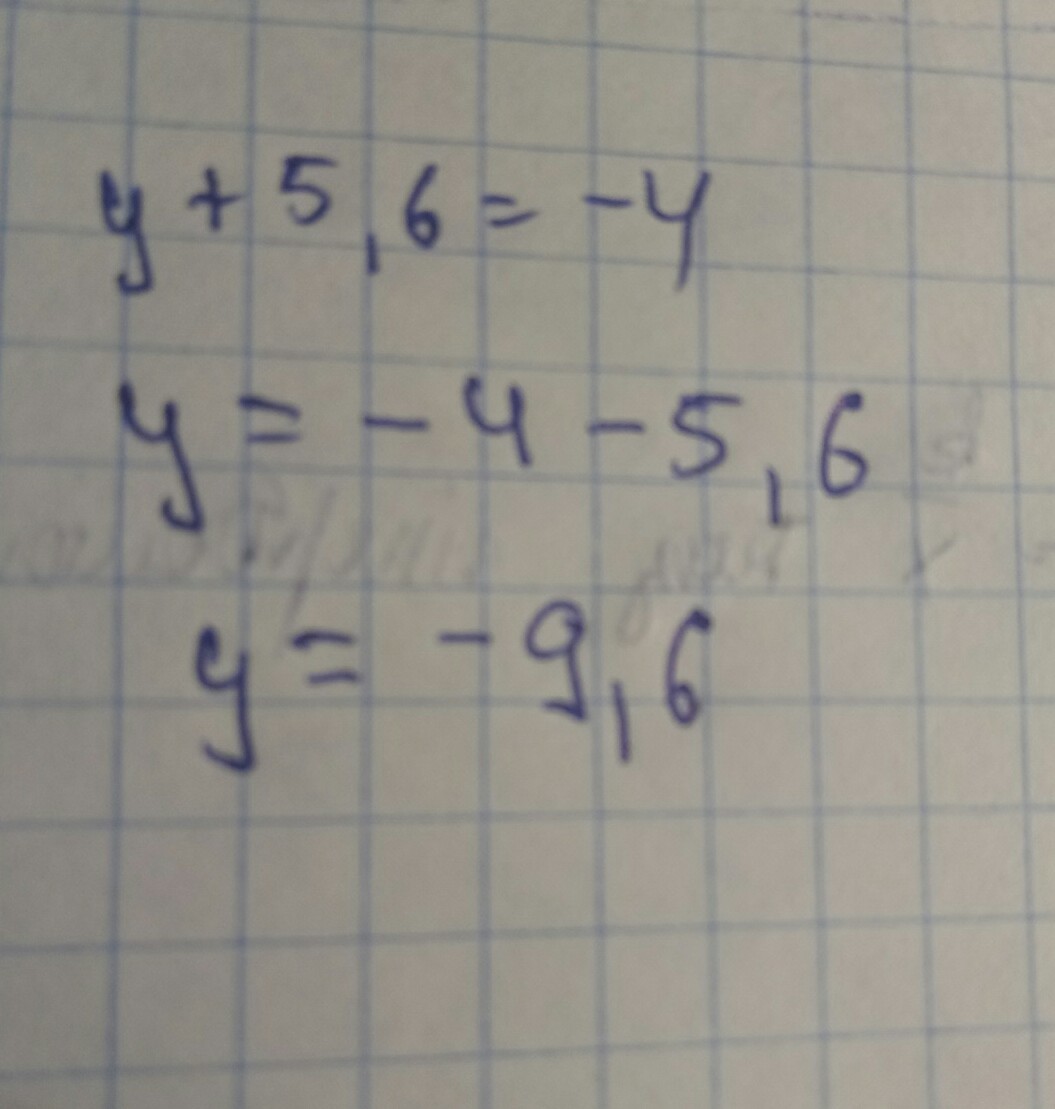 y + 5,6 = -4
y = - 4 - 5,6
y = - 9,6